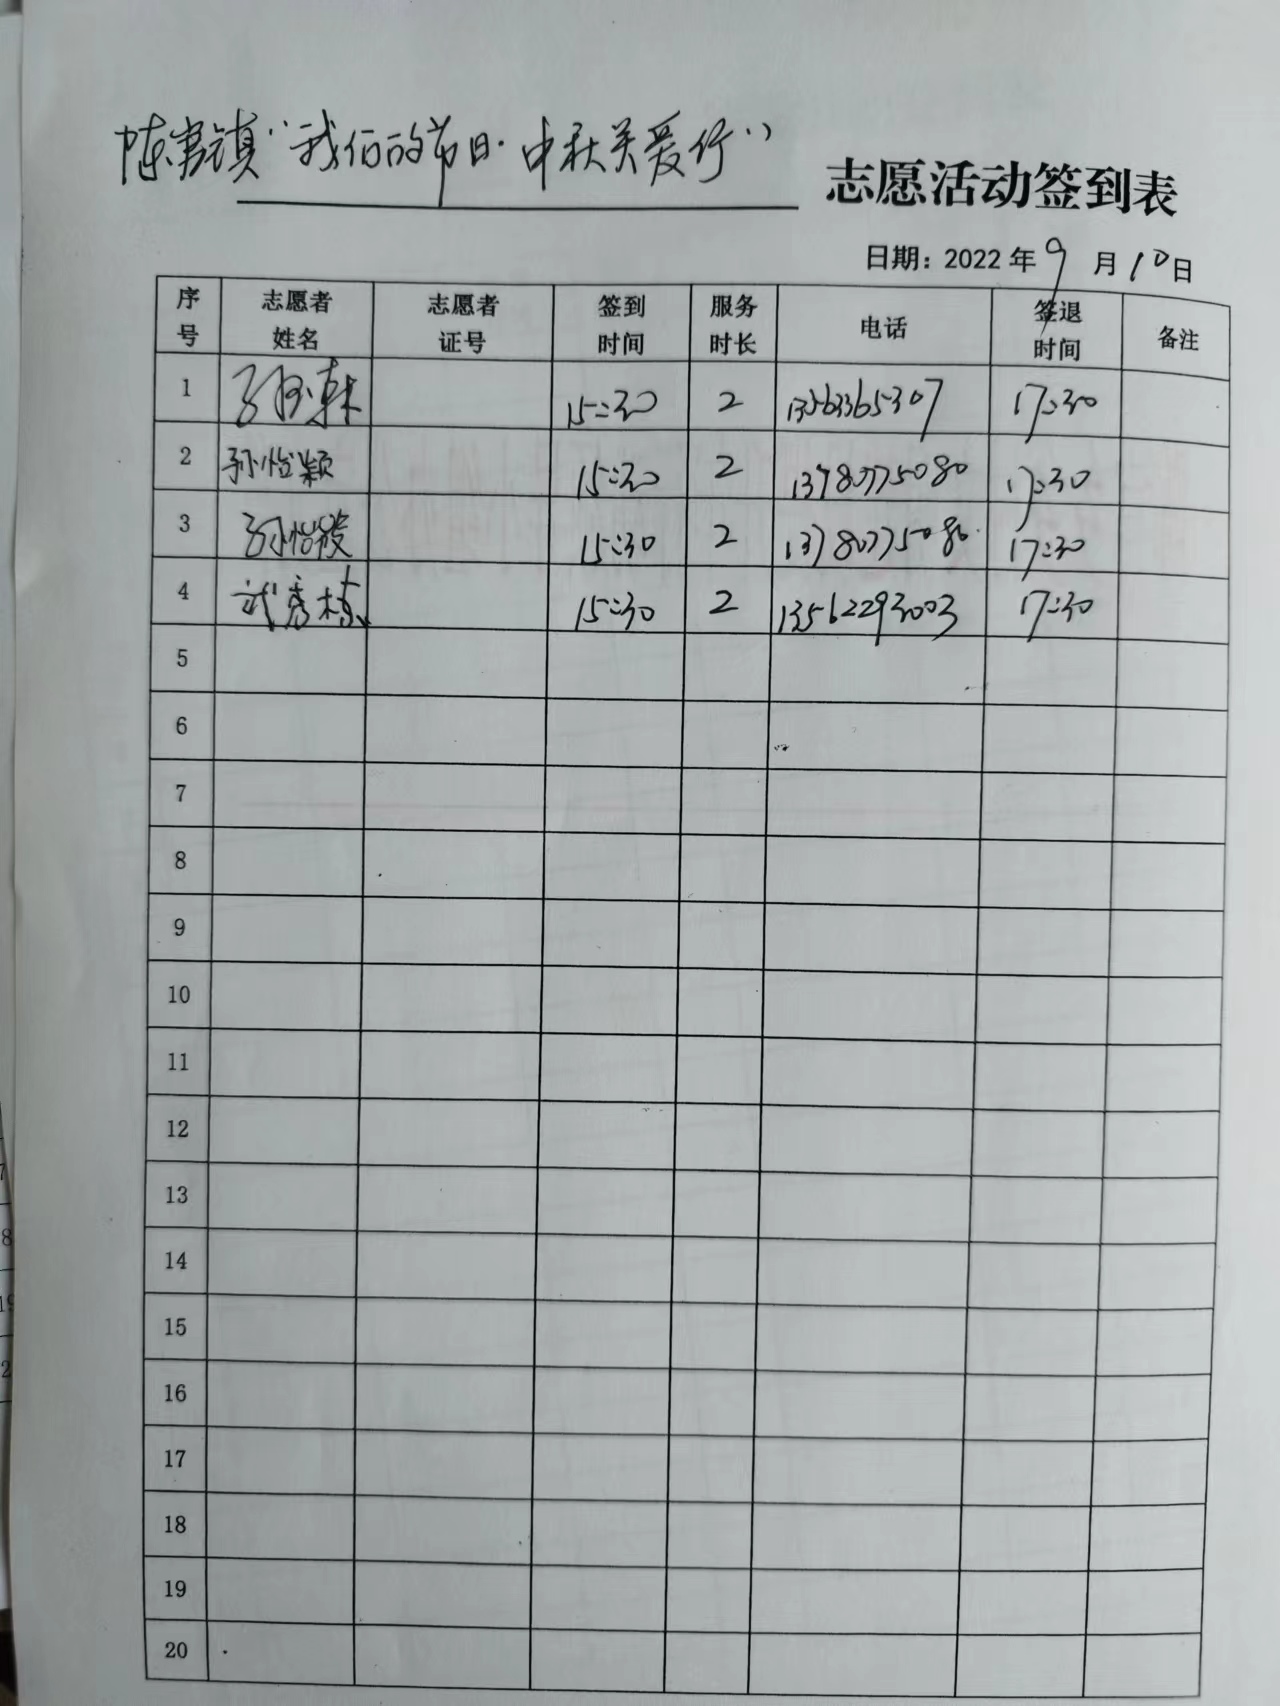 "我们的节日·中秋关爱行"
志愿活动签到表
日期：2022年9月10日
序号 志愿者姓名 志愿者证号 签到时间 服务时长 电话 签退时间 备注
1 15:30 2 13563365307 17:30
2 孙怡颖 15:30 2 13780775080 17:30
3 15:30 2 13780775080 17:30
4 武秀梅 15:30 2 13562293003 17:30
5
6
7
8
9
10
11
12
13
14
15
16
17
18
19
20